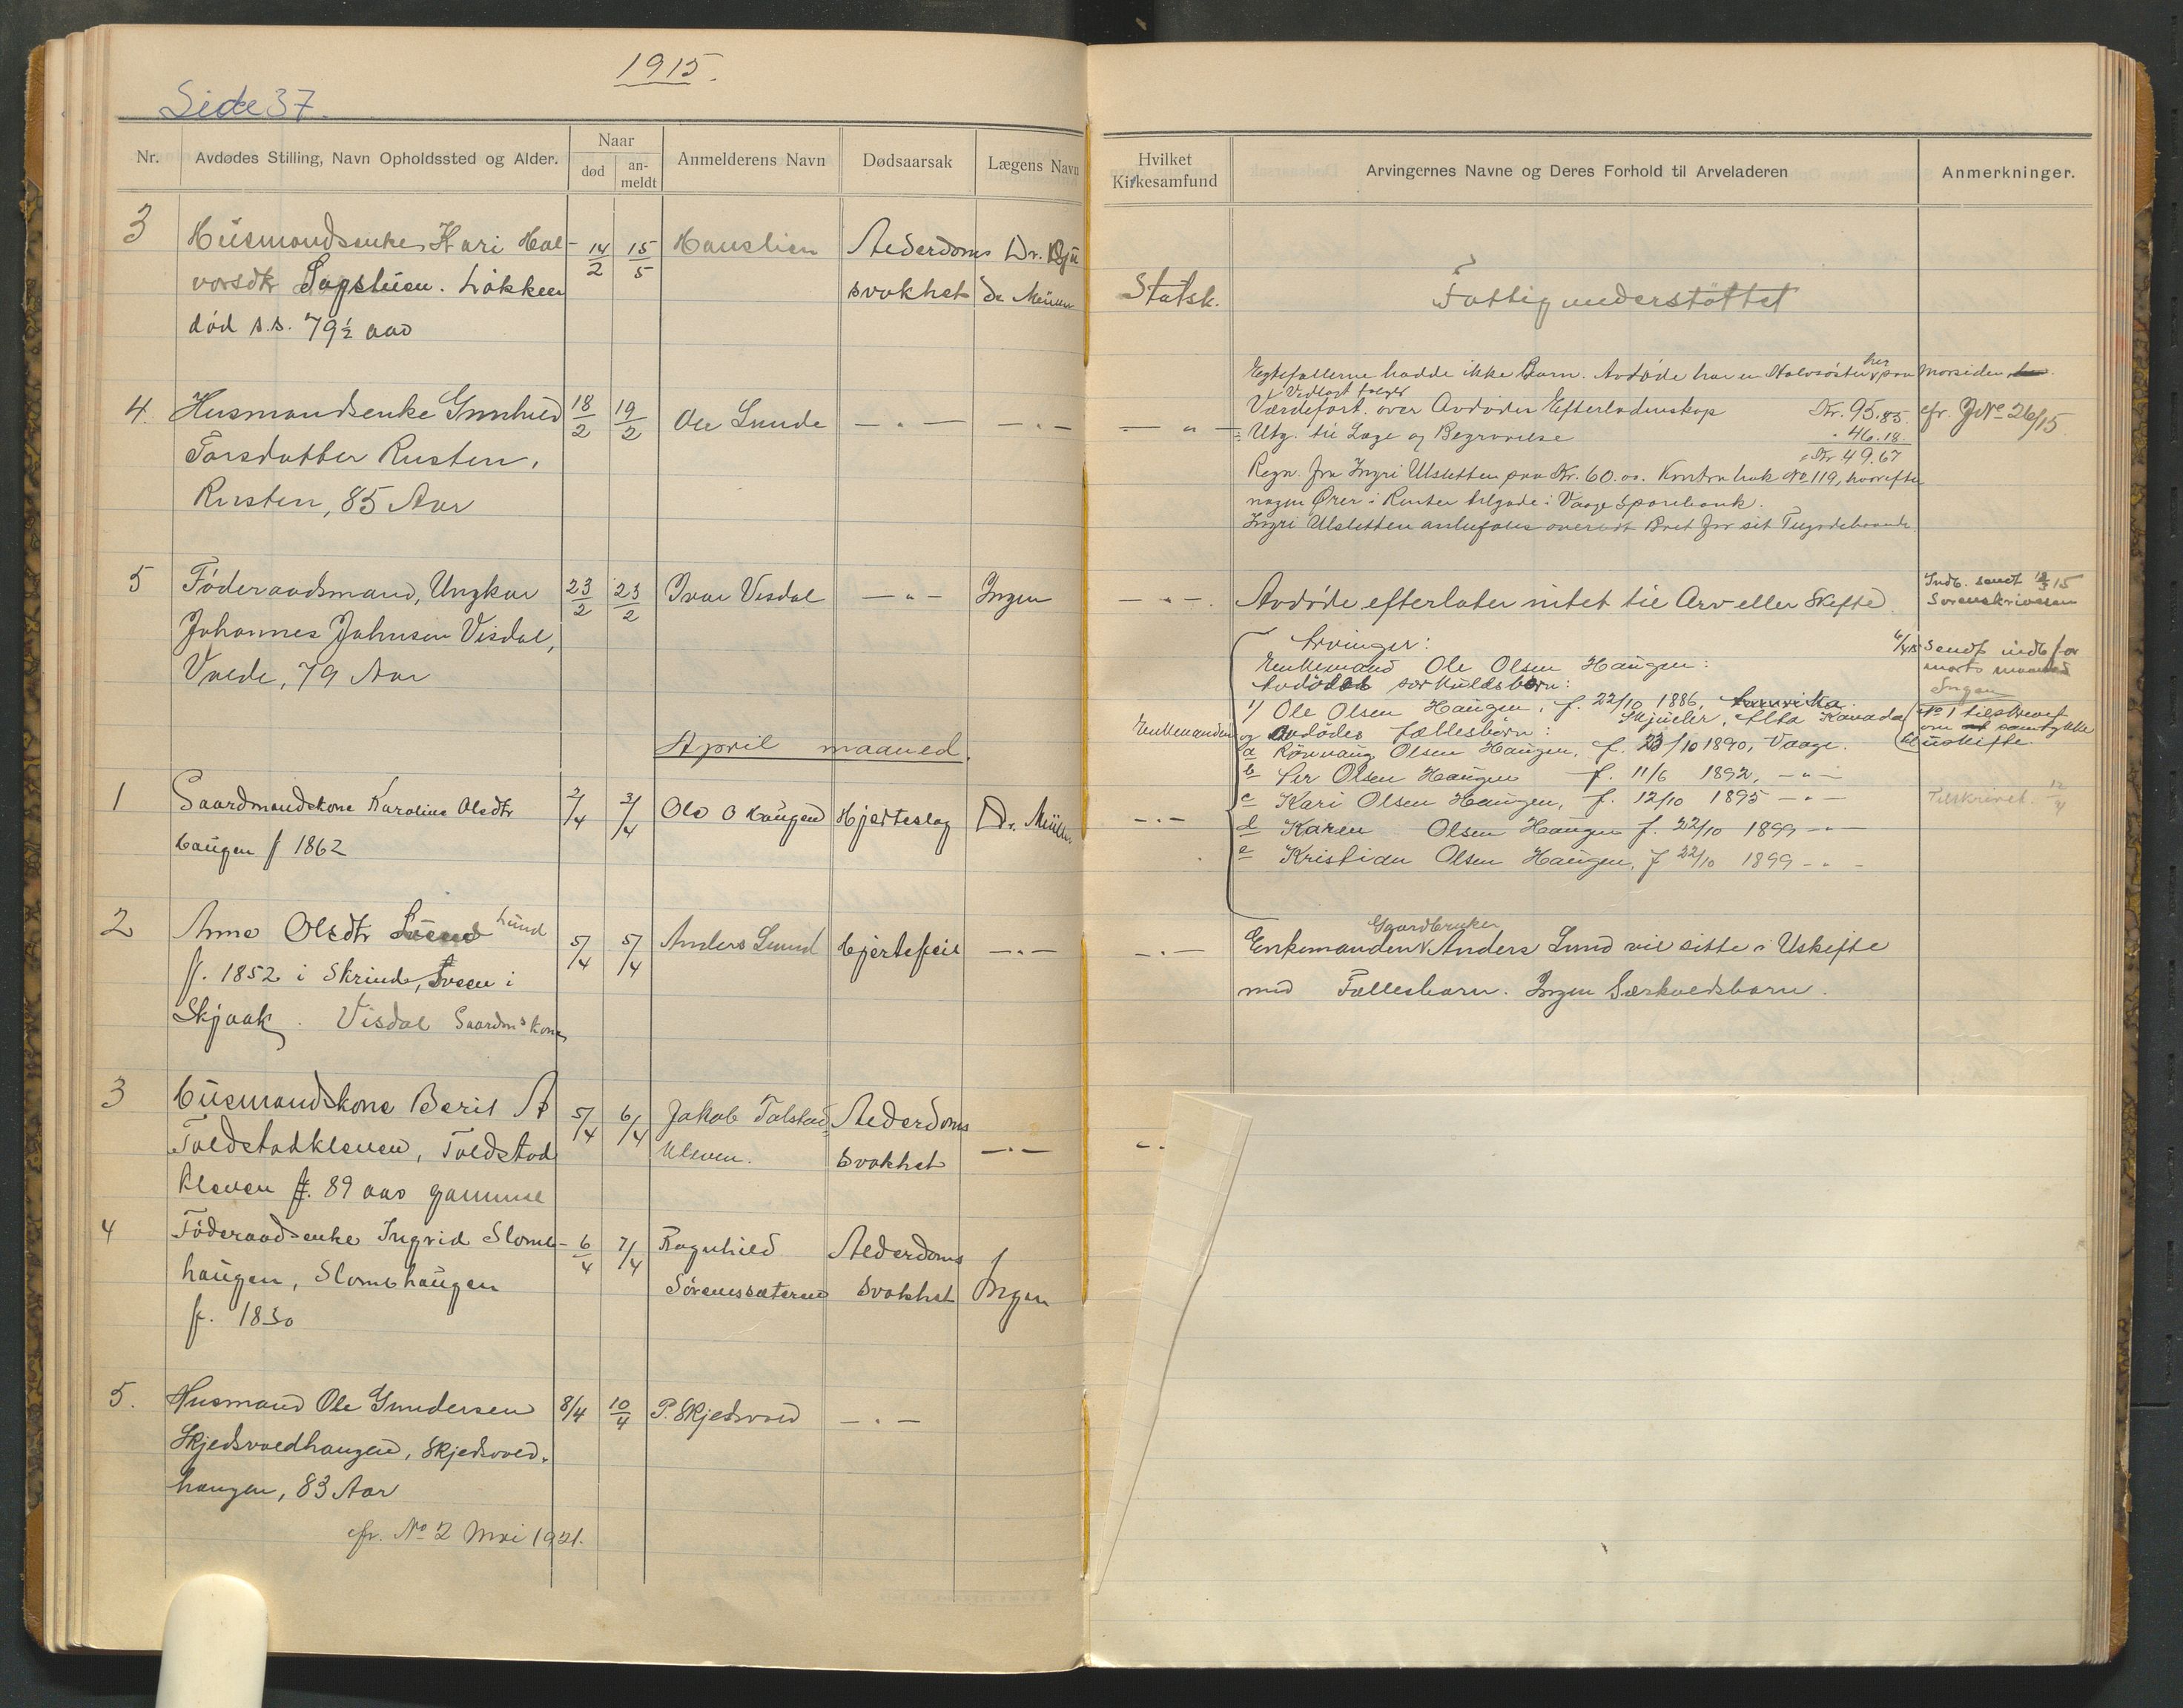 1915.
Side 37.
Nr.
Avdødes Stilling, Navn Opholdssted og Alder.
Naar
død
an-
meldt
Anmelderens Navn
Dødsaarsak
Lægens Navn
Hvilket
Kirkesamfund
Arvingernes Navne og Deres Forhold til Arveladeren
Anmerkninger.
3
Husmandsenke Kari Hal-
vorsdtr
død s.s. 79½ aar
14/2
15/5
Hauslien
Alderdoms
svakhet
Dr.
Statsk.
Fattigunderstöttet
4.
Husmandsenke Gunhild
Torsdatter Rusten,
Rusten, 85 Aar
18/2
19/2
Ole Lunde
— " —
— " —
— " —
Egtefællerne hadde ikke Barn. Avdøde har en Halvsøster her paa Morsiden
Vedlagt følger
Værdifort. over Avdødes Efterladenskap Kr. 95.85.
Utg. til Læge og Begravelse 46.18.
Kr 49.67
Regn. fra Ingri Ulsletten paa Kr. 60.00. Kontra bok No 119, hvorefter
nogen Ører i Renter tilgode i Vaage Sparebank.
Ingri Ulsletten
cfr. J No 26/15
5
Føderaadsmand, Ungkar
Johannes Johnsen Visdal,
79 Aar
23/2
23/2
Ivar Visdal
— " —
Ingen
— " —
Avdøde efterlater intet til Arv eller Skifte.
Indb. sendt
Sorenskriveren
6/4 15 Sendt indb for
marts maaned
Ingen
April maaned.
1
Gaardmandskone Karoline Olsdtr
Haugen f 1862
2/4
3/4
Ole O Haugen
Hjerteslag
Dr. Müller
Enkemanden
— " —
Arvinger:
Enkemand Ole Olsen Haugen:
Avdødes særkuldsbørn:
1/ Ole Olsen Haugen, f. 22/10 1886,
Alta Kanada
og avdødes fællesbörn:
a Rønnaug Olsen Haugen, f. 23/10 1890, Vaage.
b Per Olsen Haugen f. 11/6 1892, — " —
c Kari Olsen Haugen, f. 12/10 1895 — " —
d Karen Olsen Haugen f. 22/10 1899 — " —
e Kristian Olsen Haugen, f 22/10 1899 — " —
No 1 tilskrevet
om samtykke
til uskifte.
Tilskrevet 12/4
2
Anne Olsdtr Lund
f. 1852 i Skrinde, i
Skjaak. Visdal Gaardmskone
5/4
5/4
Anders Lund
Hjertefeil
— " —
— " —
Gaardbruker
Enkemanden Anders Lund vil sitte i Uskifte
med Fællesbarn. Ingen Særkuldsbarn.
3
Husmandskone Berit
Toldstadkleven, Toldstad
kleven f. 89 aar gammel
5/4
6/4
Jakob Tolstad
Ulsven.
Alderdoms
svakhet
— " —
4
Föderaadsenke Ingrid Slomb-
haugen, Slombhaugen
f. 1830
6/4
7/4
Ragnhild
Sørenssæteren
Alderdoms
svakhet
Ingen
5.
Husmand Ole Gundersen
Skjedsvoldhaugen, Skjedsvold-
haugen, 83 Aar
8/4
10/4
P. Skjedsvold
— " —
cfr. No 2 Mai 1921.